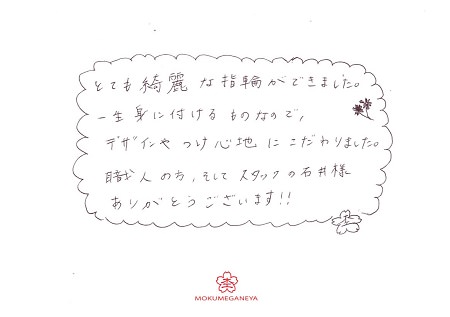 とても綺麗な指輪ができました。
一生身に付けるものなので、
デザインやつけ心地にこだわりました。
職人の方、そしてスタッフの石井様
ありがとうございます!!
MOKUMEGANEYA